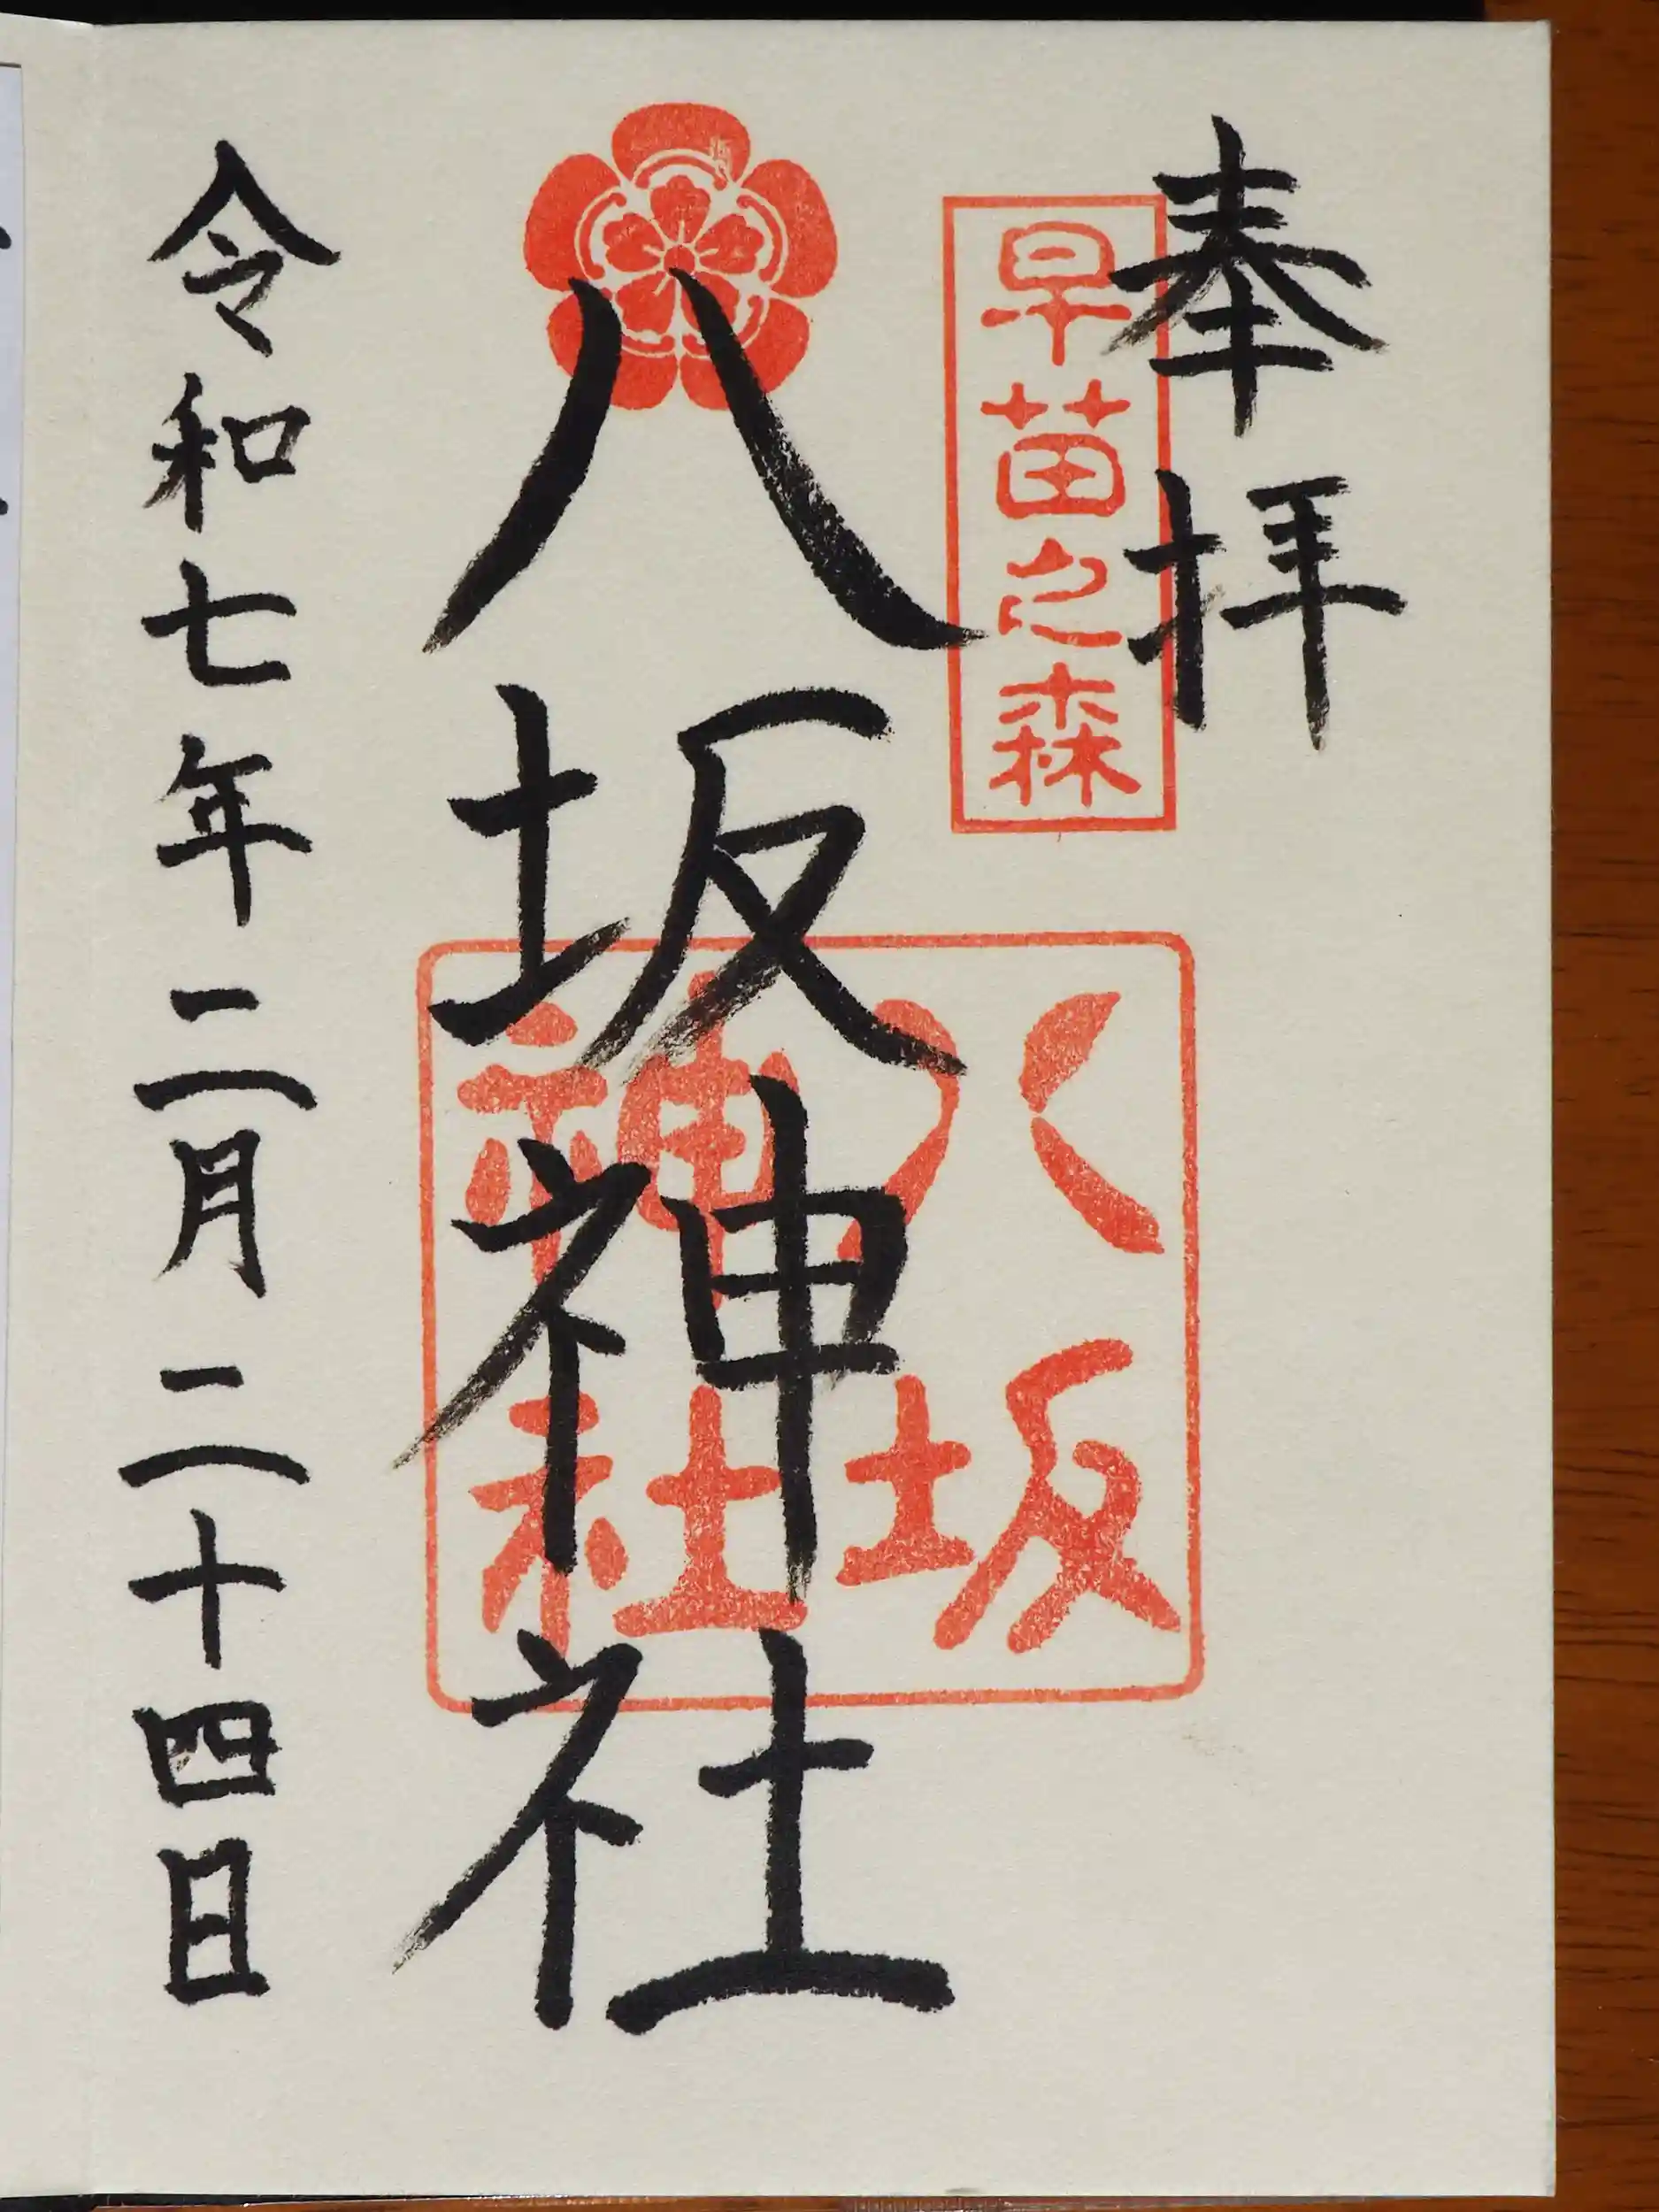 奉拝
早苗之森
八坂神社
八坂神社
令和七年二月二十四日